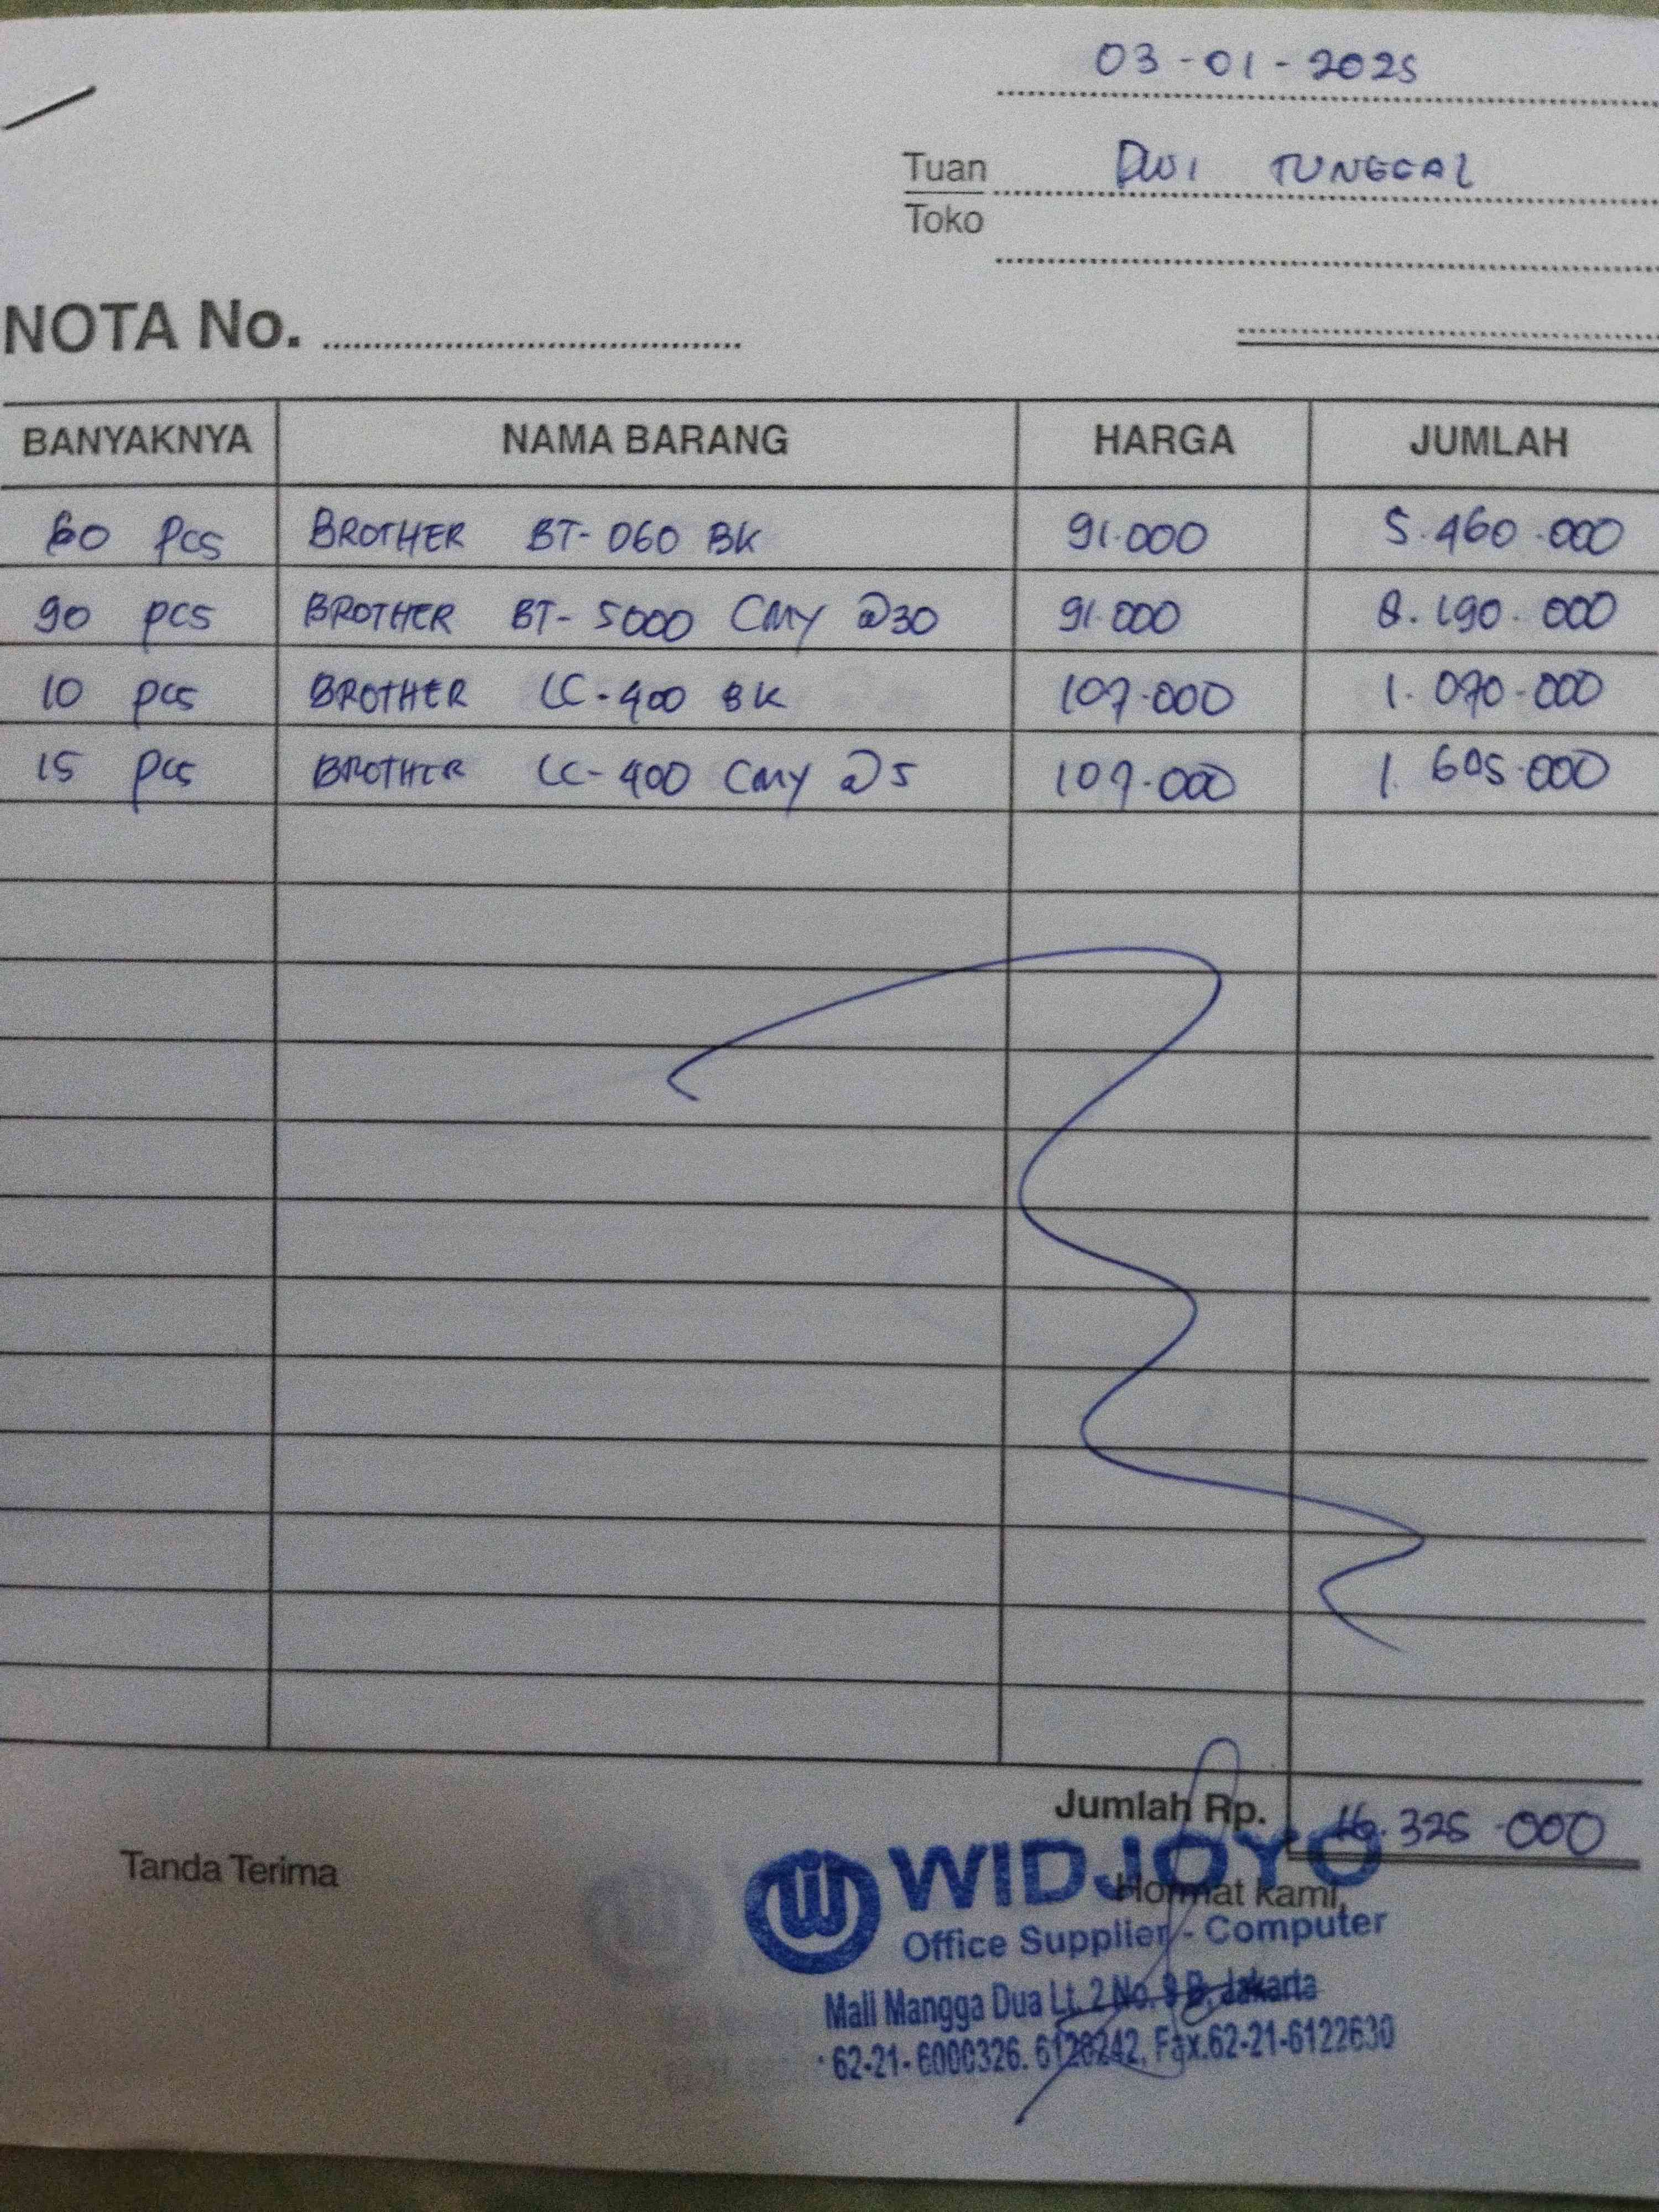 03-01-2025
Tuan DWI TUNGGAL
Toko
NOTA No.
BANYAKNYA NAMA BARANG HARGA JUMLAH
60 Pcs BROTHER BT-D60 BK 91.000 5.460.000
90 pcs BROTHER BT-5000 CMY @30 91.000 8.190.000
10 pcs BROTHER LC-400 BK 107.000 1.070.000
15 pcs BROTHER LC-400 CMY @5 107.000 1.605.000
Jumlah Rp. 16.325.000
Tanda Terima
Hormat kami,
WIDJOYO
Office Supplier - Computer
Mall Mangga Dua Lt. 2 No. 9 B, Jakarta
62-21-6000326. 6128242, Fax.62-21-6122630